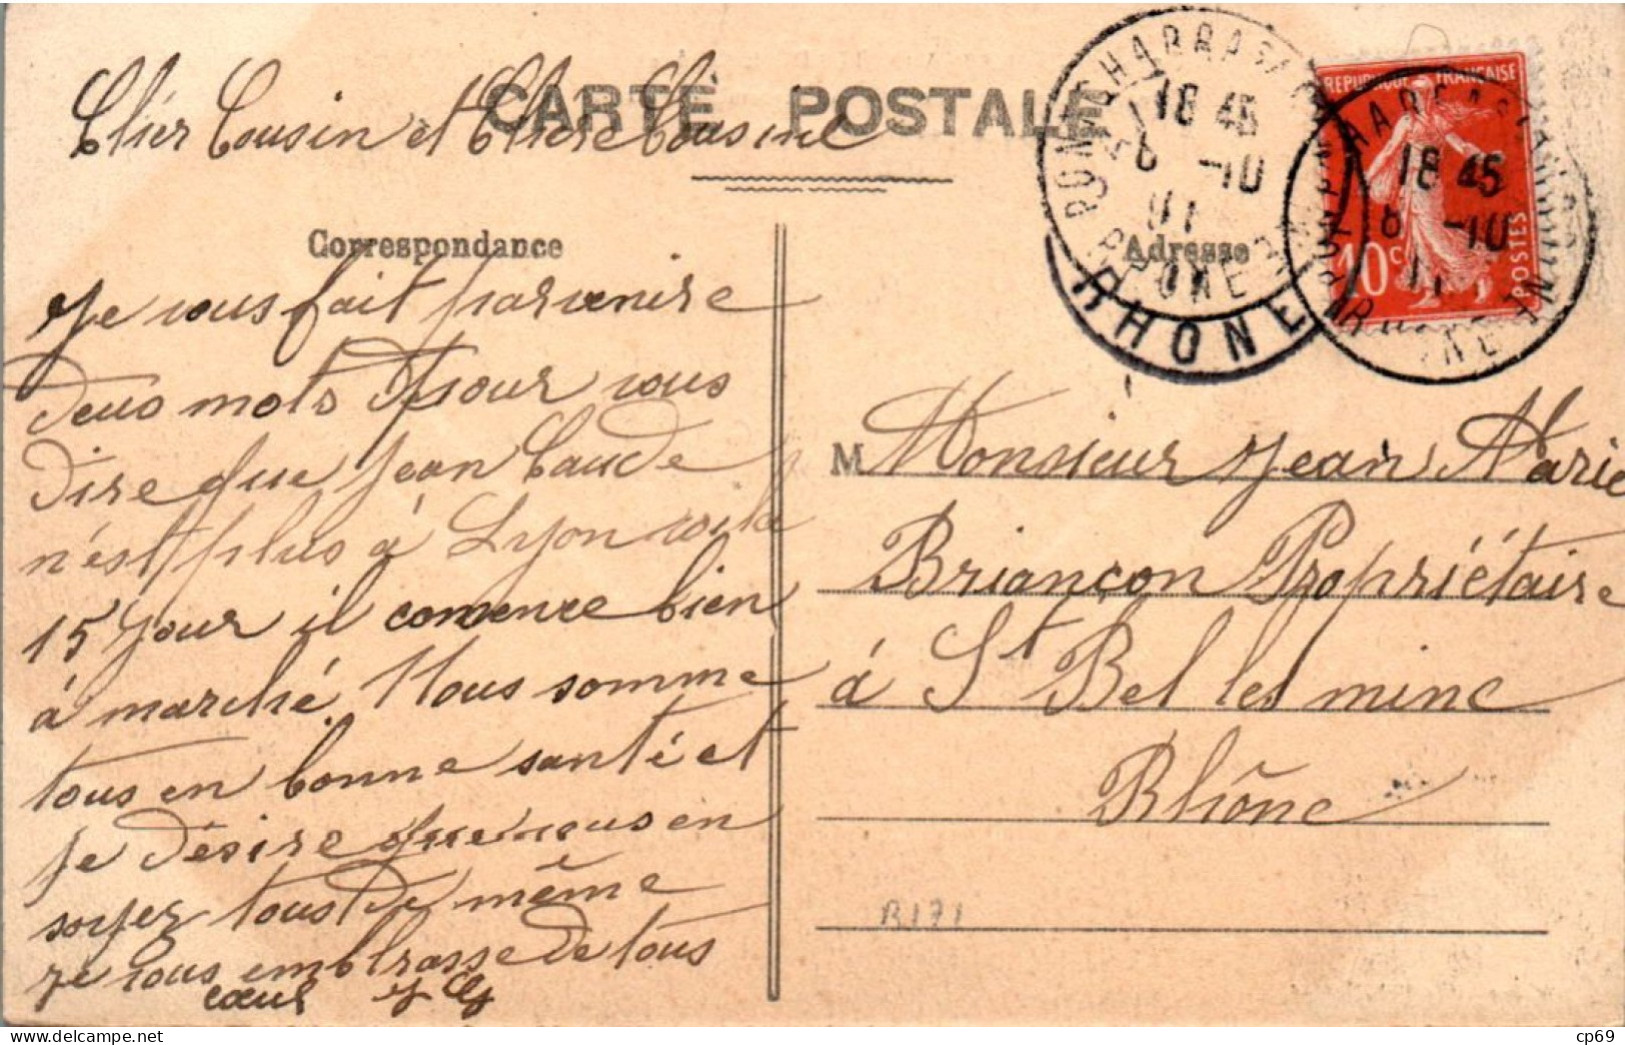 CARTE POSTALE
Cher Cousin et Chère Cousine
Correspondance
Je vous fait parvenire
deux mots pour vous
dire que Jean Caude
n'est plus à Lyon voila
15 Jour il comence bien
à marché. Nous somme
tous en bonne santé et
je désire que vous en
soyez tous de même
je vous emblrasse de tous
cœur
Adresse
M Monsieur Jean Marie
Briançon Propriétaire
à St Bel les mine
Rhône
R171
PONTCHARRA
18 45
6 -10
11
RHONE
RHONE
REPUBLIQUE FRANÇAISE
10c
POSTES
18 45
6 -10
11
cp69